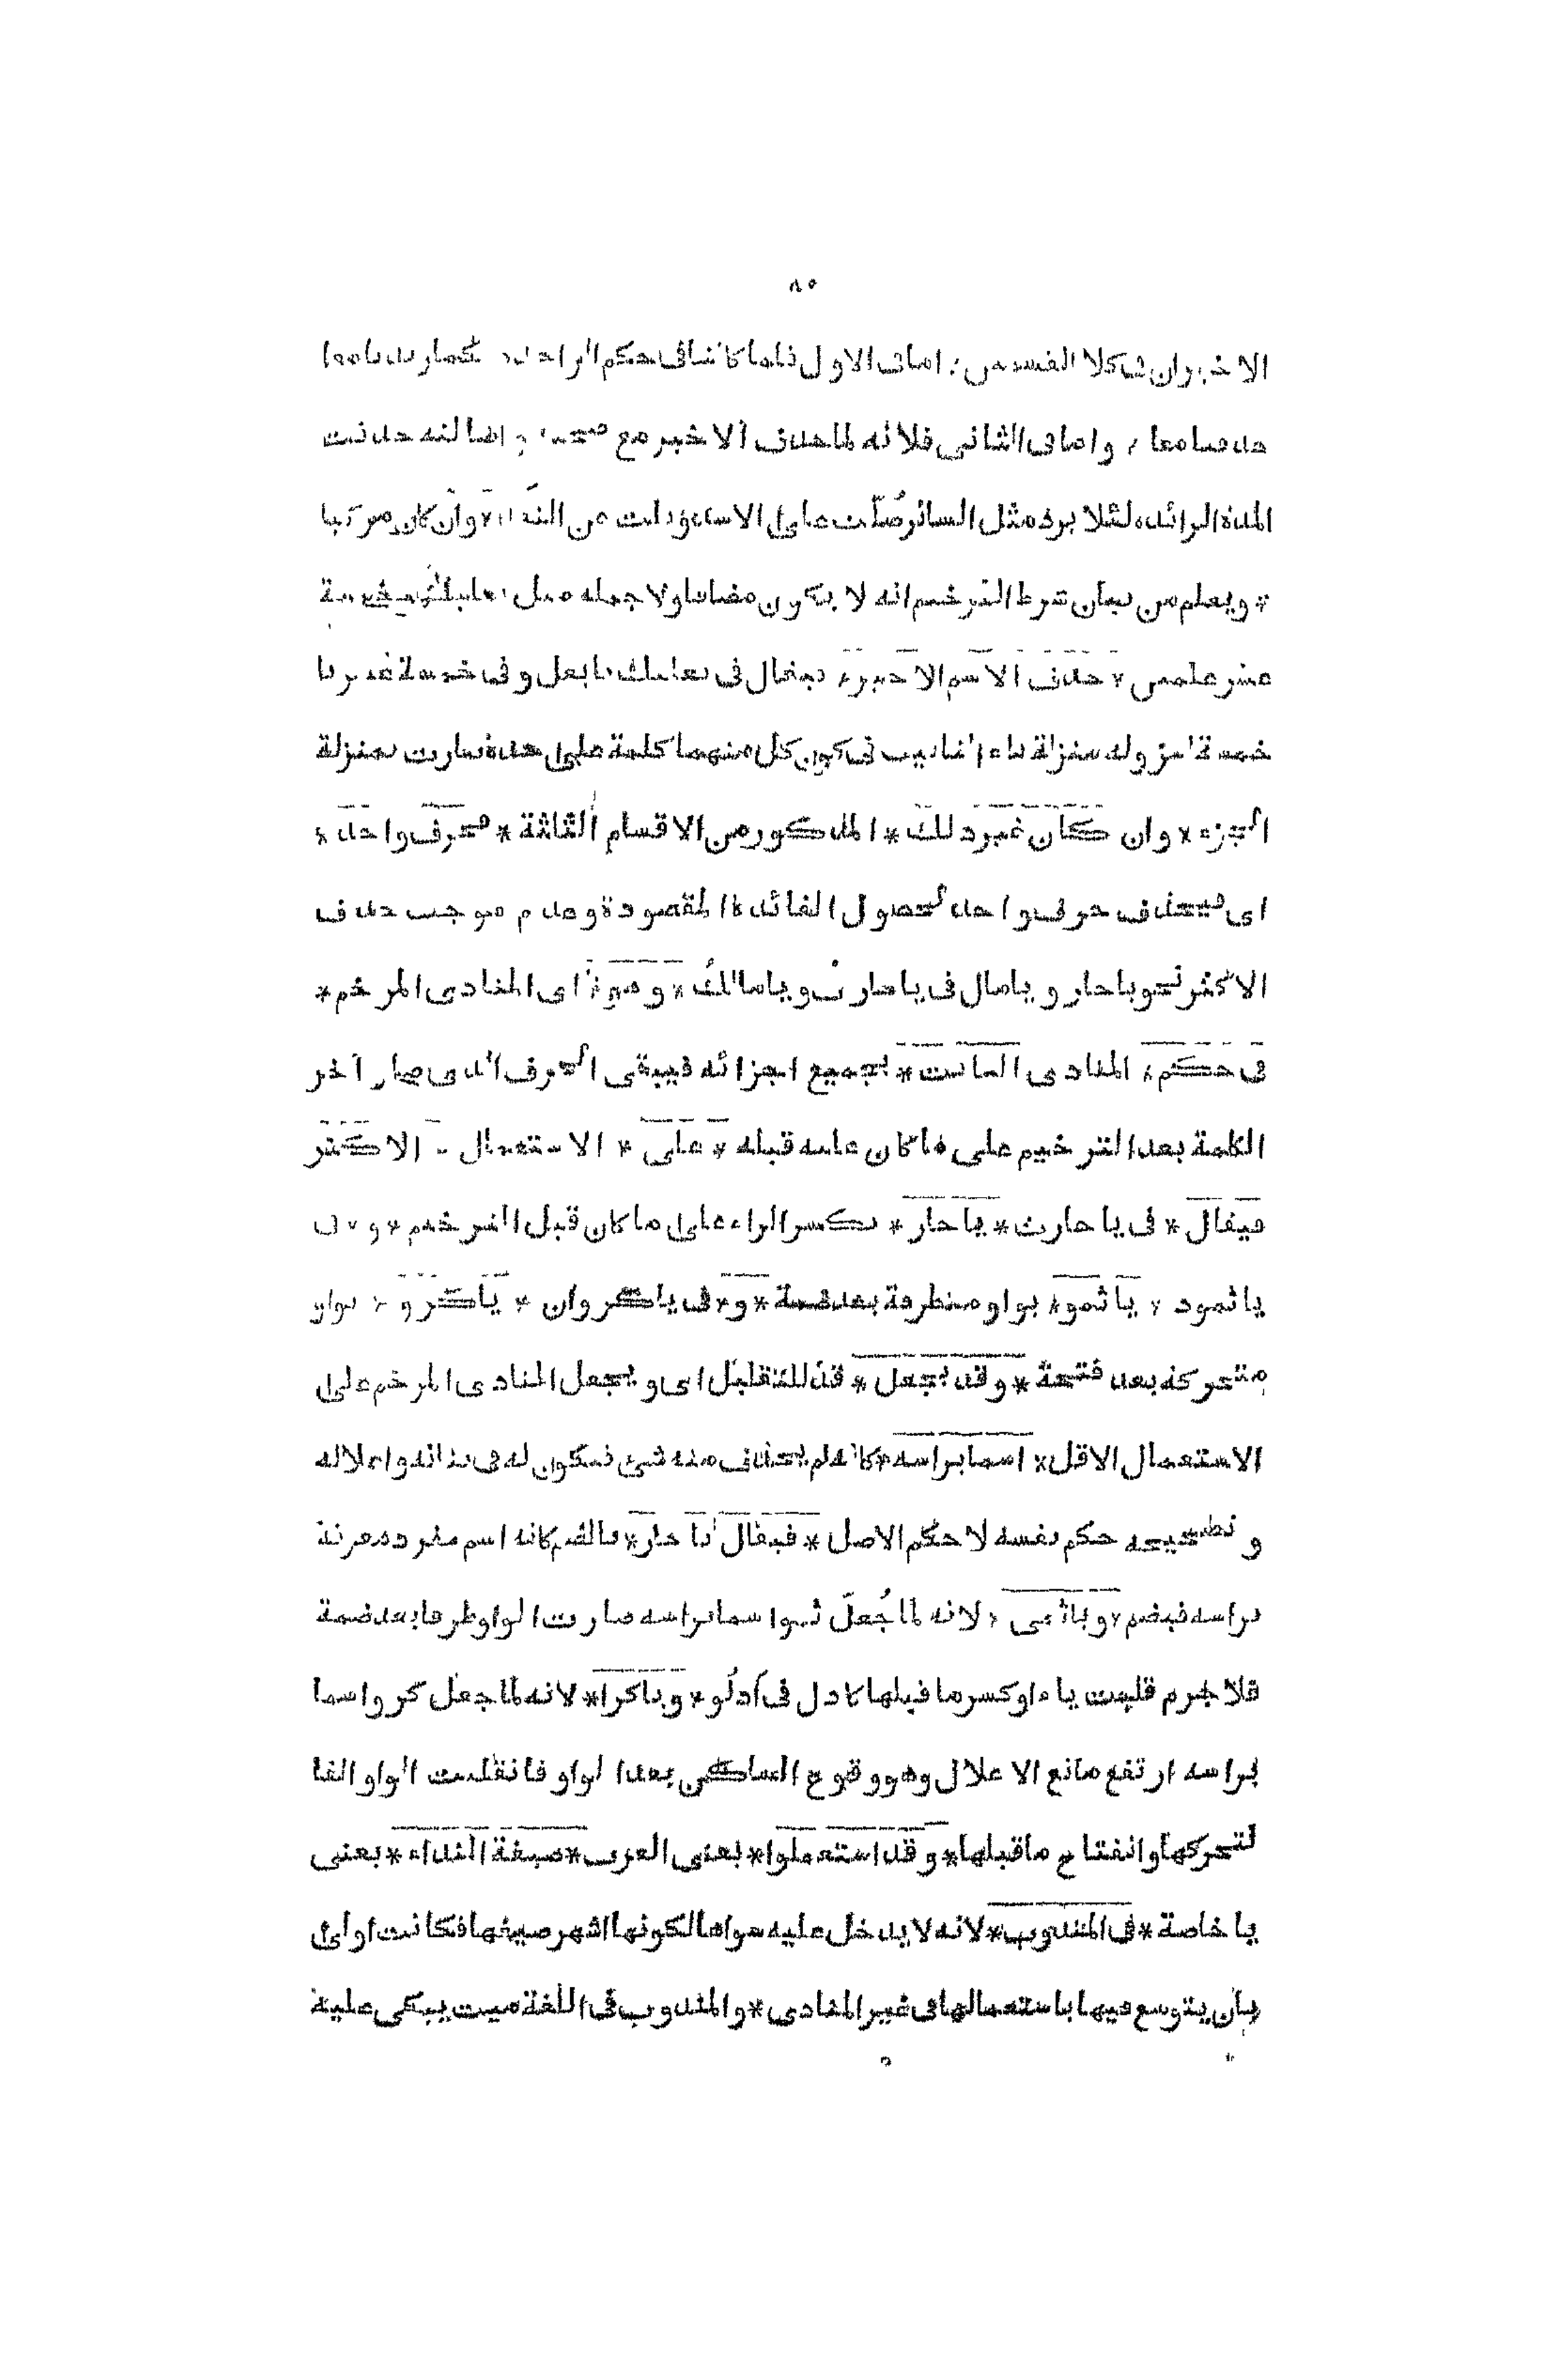 ٨٥
الاخيران فى كلا القسمين * اما فى الاول فلما كانتا فى حكم الواحدة فكما زيدتا معا
حذفتا معا * واما فى الثانى فلانه لما حذف الاخير مع صحته واصالته حذفت
المدة الزائدة لئلا يرد مثل السائر صُلْت على الاسد وبُلت عن النقد * وان كان مركبا
* ويعلم من بيان شرط الترخيم انه لا يكون مضافا ولا جملة مثل بعلبك وخمسة
عشر علمين * حذف الاسم الاخير * فيقال فى بعلبك يا بعل وفى خمسة عشر يا
خمسة لنزوله منزلة تاء التانيث فى كون كل منهما كلمة على حدة صارت بمنزلة
الجزء * وان كان غير ذلك * المذكور من الاقسام الثلثة * فحرف واحد *
اى فيحذف حرف واحد لحصول الفائدة المقصودة وعدم موجب حذف
الاكثر نحو يا حار و يا مال فى يا حارث ويا مالك * وهو * اى المنادى المرخم *
فى حكم * المنادى الثابت * بجميع اجزائه فيبقى الحرف الذى صار آخر
الكلمة بعد الترخيم على ما كان عليه قبله * على * الاستعمال * الاكثر
فيقال * فى يا حارث * يا حار * بكسر الراء على ما كان قبل الترخيم * و * فى
يا ثمود * يا ثمو * بواو متطرفة بعد ضمة * و * فى يا كروان * يا كرو * بواو
متحركة بعد فتحة * وقد يجعل * قد للتقليل اى و يجعل المنادى المرخم على
الاستعمال الاقل * اسما براسه * كانه لم يحذف منه شئ فيكون له فى بنائه واعلاله
و تصحيحه حكم نفسه لا حكم الاصل * فيقال يا حار * بالضم كانه اسم مفرد معرفة
براسه فيضم * ويا ثمى * لانه لما جُعل ثمو اسما براسه صارت الواو طرفا بعد ضمة
فلا جرم قلبت ياء او كسر ما قبلها كادل فى أدلُو * ويا كرا * لانه لما جعل كرو اسما
براسه ارتفع مانع الاعلال وهو وقوع الساكن بعد الواو فانقلبت الواو الفا
لتحركها وانفتاح ما قبلها * وقد استعملوا * يعنى العرب * صيغة النداء * يعنى
يا خاصة * فى المندوب * لانه لا يدخل عليه سواها لكونها اشهر صيغها فكانت اولى
بان يتوسع فيها باستعمالها فى غير المنادى * والمندوب فى اللغة ميت يبكى عليه